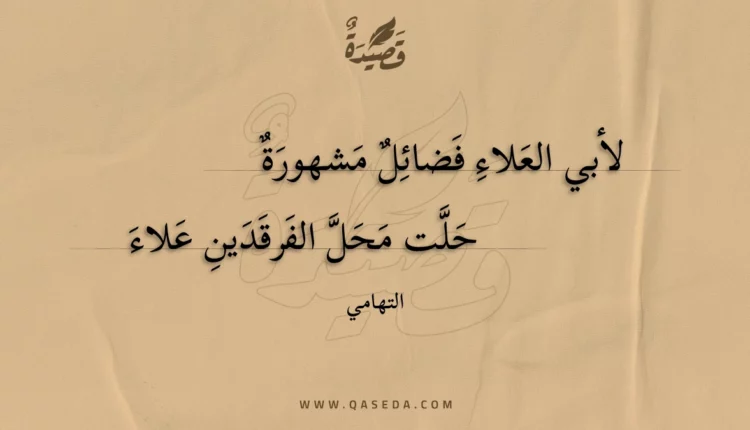 قَصِيدَةٌ
لأبي العَلاءِ فَضائِلٌ مَشهورَةٌ
حَلَّت مَحَلَّ الفَرقَدَينِ عَلاءَ
التهامي
WWW.QASEDA.COM